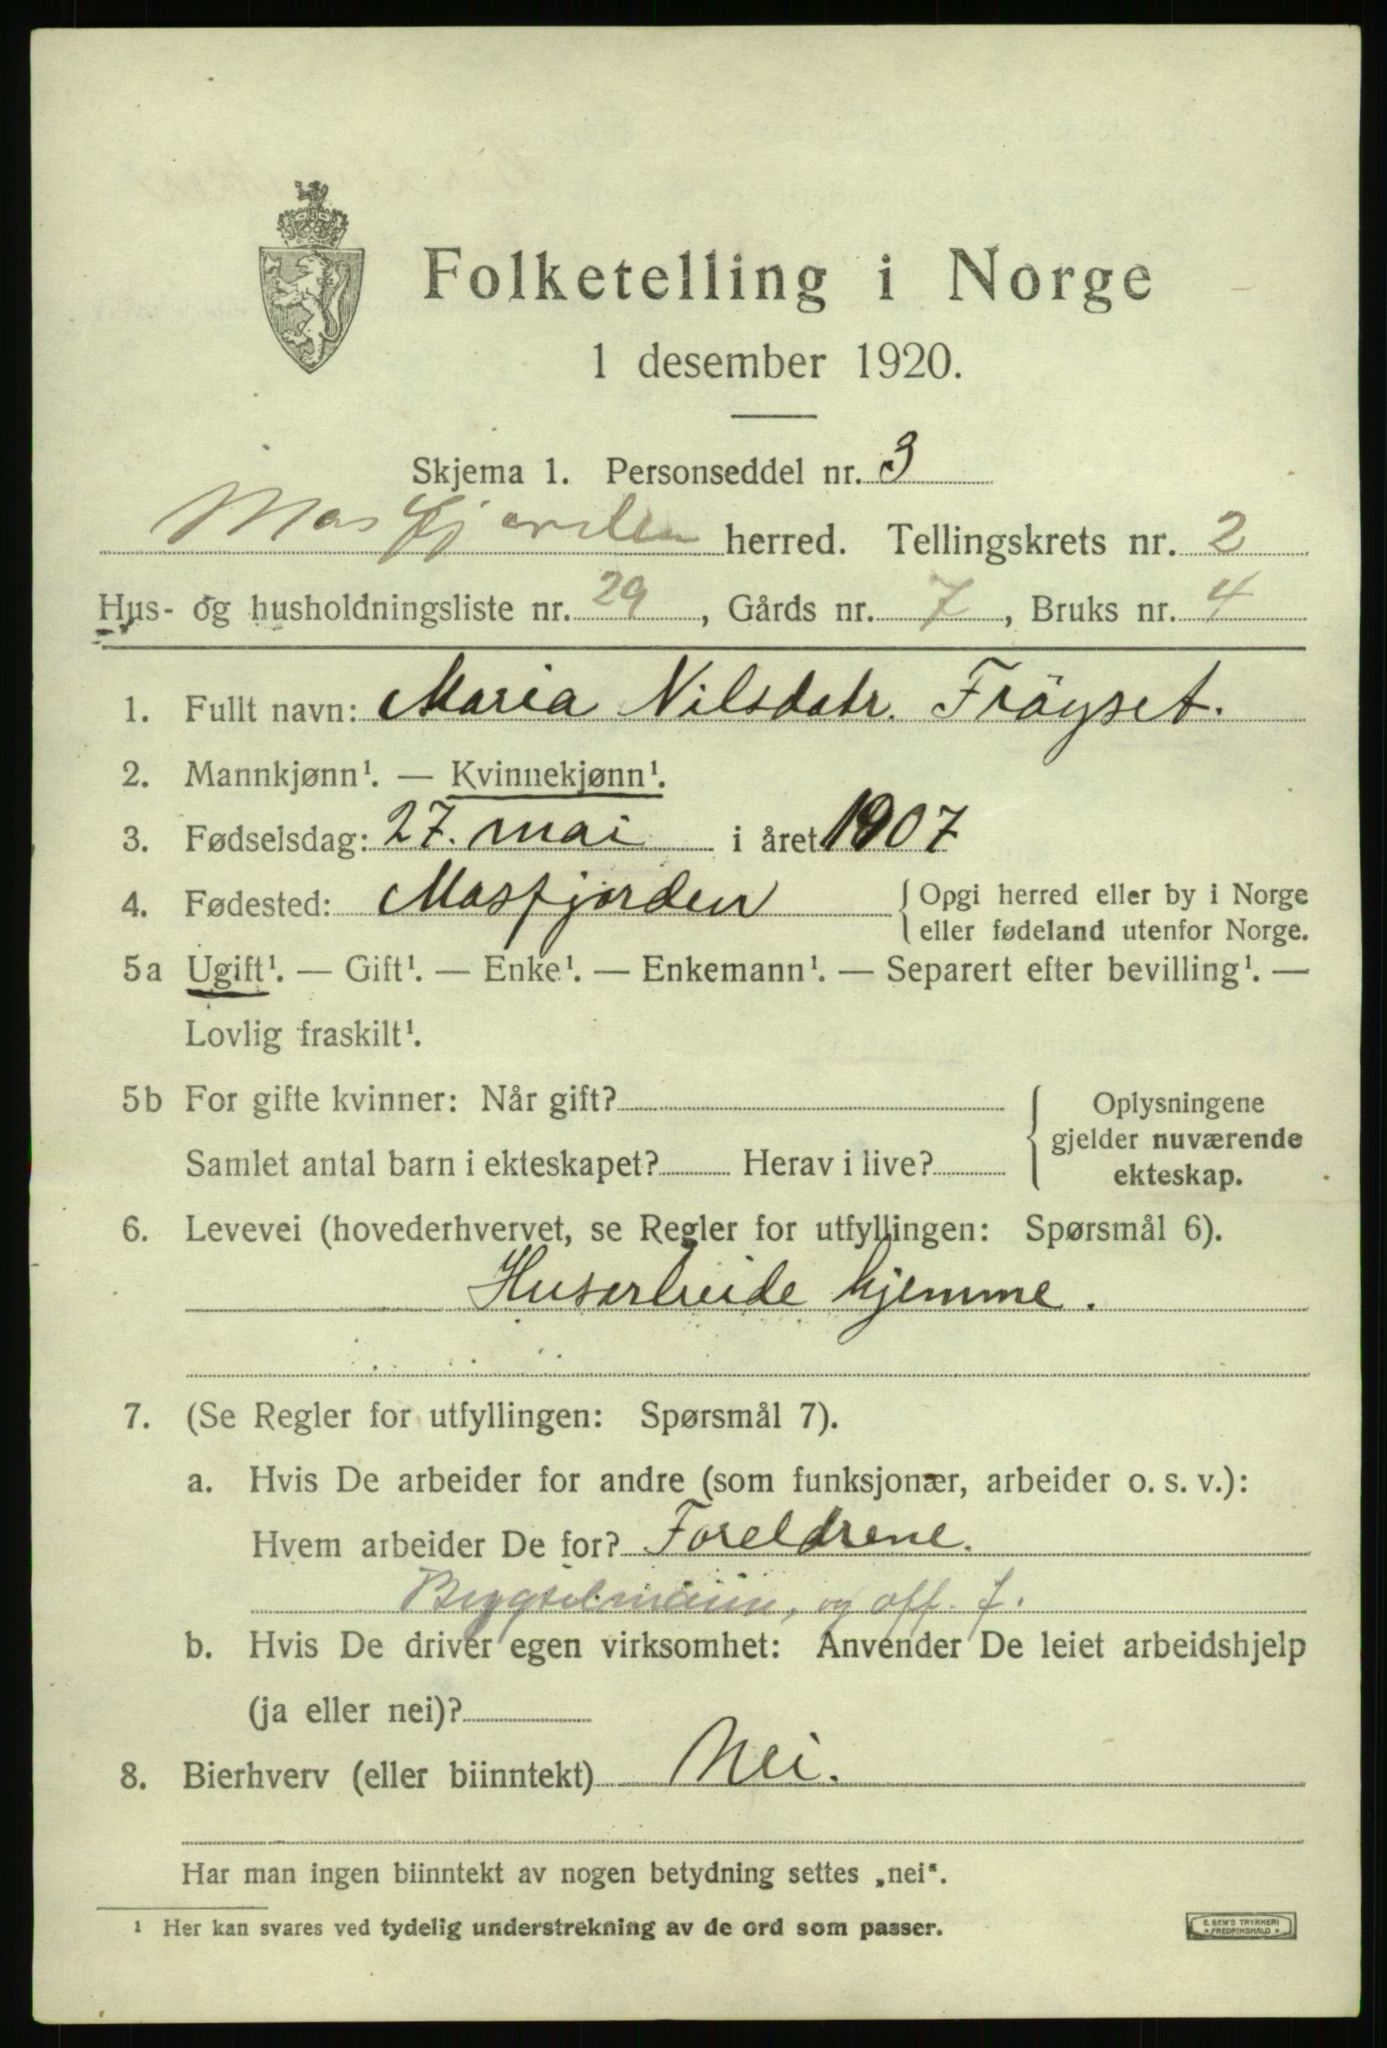 Folketelling i Norge
1 desember 1920.
Skjema 1. Personseddel nr. 3
Masfjorden herred. Tellingskrets nr. 2
Hus- og husholdningsliste nr. 29, Gårds nr. 7, Bruks nr. 4
1. Fullt navn: Maria Nilsdatr. Fröyset.
2. Mannkjønn¹. — Kvinnekjønn¹.
3. Fødselsdag: 27. mai i året 1907
4. Fødested: Masfjorden { Opgi herred eller by i Norge
eller fødeland utenfor Norge.
5a Ugift¹. — Gift¹. — Enke¹. — Enkemann¹. — Separert efter bevilling¹. —
Lovlig fraskilt¹.
5b For gifte kvinner: Når gift? { Oplysningene
gjelder nuværende
Samlet antal barn i ekteskapet? Herav i live? ekteskap.
6. Levevei (hovederhvervet, se Regler for utfyllingen: Spørsmål 6).
Husarbeide hjemme.
7. (Se Regler for utfyllingen: Spørsmål 7).
a. Hvis De arbeider for andre (som funksjonær, arbeider o. s. v.):
Hvem arbeider De for? Foreldrene.
Bygselmann, og off. f.
b. Hvis De driver egen virksomhet: Anvender De leiet arbeidshjelp
(ja eller nei)?
8. Bierhverv (eller biinntekt) Nei.
Har man ingen biinntekt av nogen betydning settes „nei“.
¹ Her kan svares ved tydelig understrekning av de ord som passer.
E. SEM'S TRYKKERI
* FREDRIKSHALD *